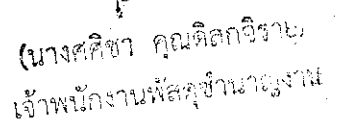 (นางศศิชา คุณดิลกจิราย)
เจ้าพนักงานพัสดุชำนาญงาน